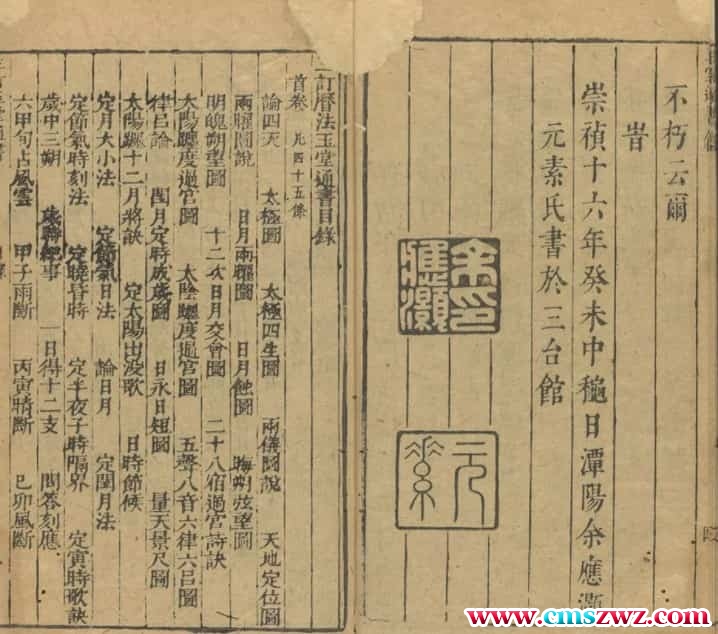 不朽云爾
旹
崇禎十六年癸未中穐日潭陽余應灝
元素氏書於三台館
余印應灝
元素
訂曆法玉堂通書目錄
首卷 凡四十五條
論四天 太極圖 太極四生圖 兩儀圖說 天地定位圖
兩曜圖說 日月兩曜圖 日月蝕圖 晦朔弦望圖
明魄朔望圖 十二次日月交會圖 二十八宿過宮詩訣
太陽躔度過宮圖 太陰躔度過宮圖 五聲八音六律六呂圖
律呂論 閏月定時成歲圖 日永日短圖 量天景尺圖
太陽躔十二月將訣 定太陽出沒歌 日時節候
定月大小法 定節氣日法 論日月 定閏月法
定節氣時刻法 定曉昏時 定半夜子時隔界 定寅時歌訣
歲中三朔 歲時紀事 一日得十二支 問答刻應
六甲旬占風雲 甲子雨斷 丙寅晴斷 己卯風斷
www.cmszwz.com